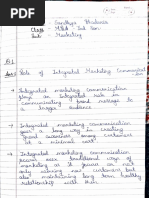 Sandhya
Class - MBA IInd Sem.
Sub: Marketing
Q.1
Ans) Role of Integrated Marketing Communication
→ Integrated marketing communication
plays an integrated role in
communicating brand message to
larger audience.
→ Integrated marketing communication
goes a long way in creating
brand awareness among customers
at a minimal cost.
→ Integrated marketing communication
scores over traditional ways of
marketing as it focuses on not
only winning new customers but
also maintaining long term healthy
relationship with them.